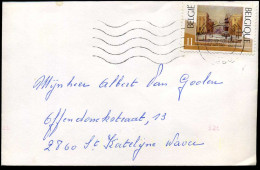 BELGIË
BELGIQUE
11
Mijnheer Albert Van Goolen
Offendonckstraat, 13
2860 St Katelijne Waver